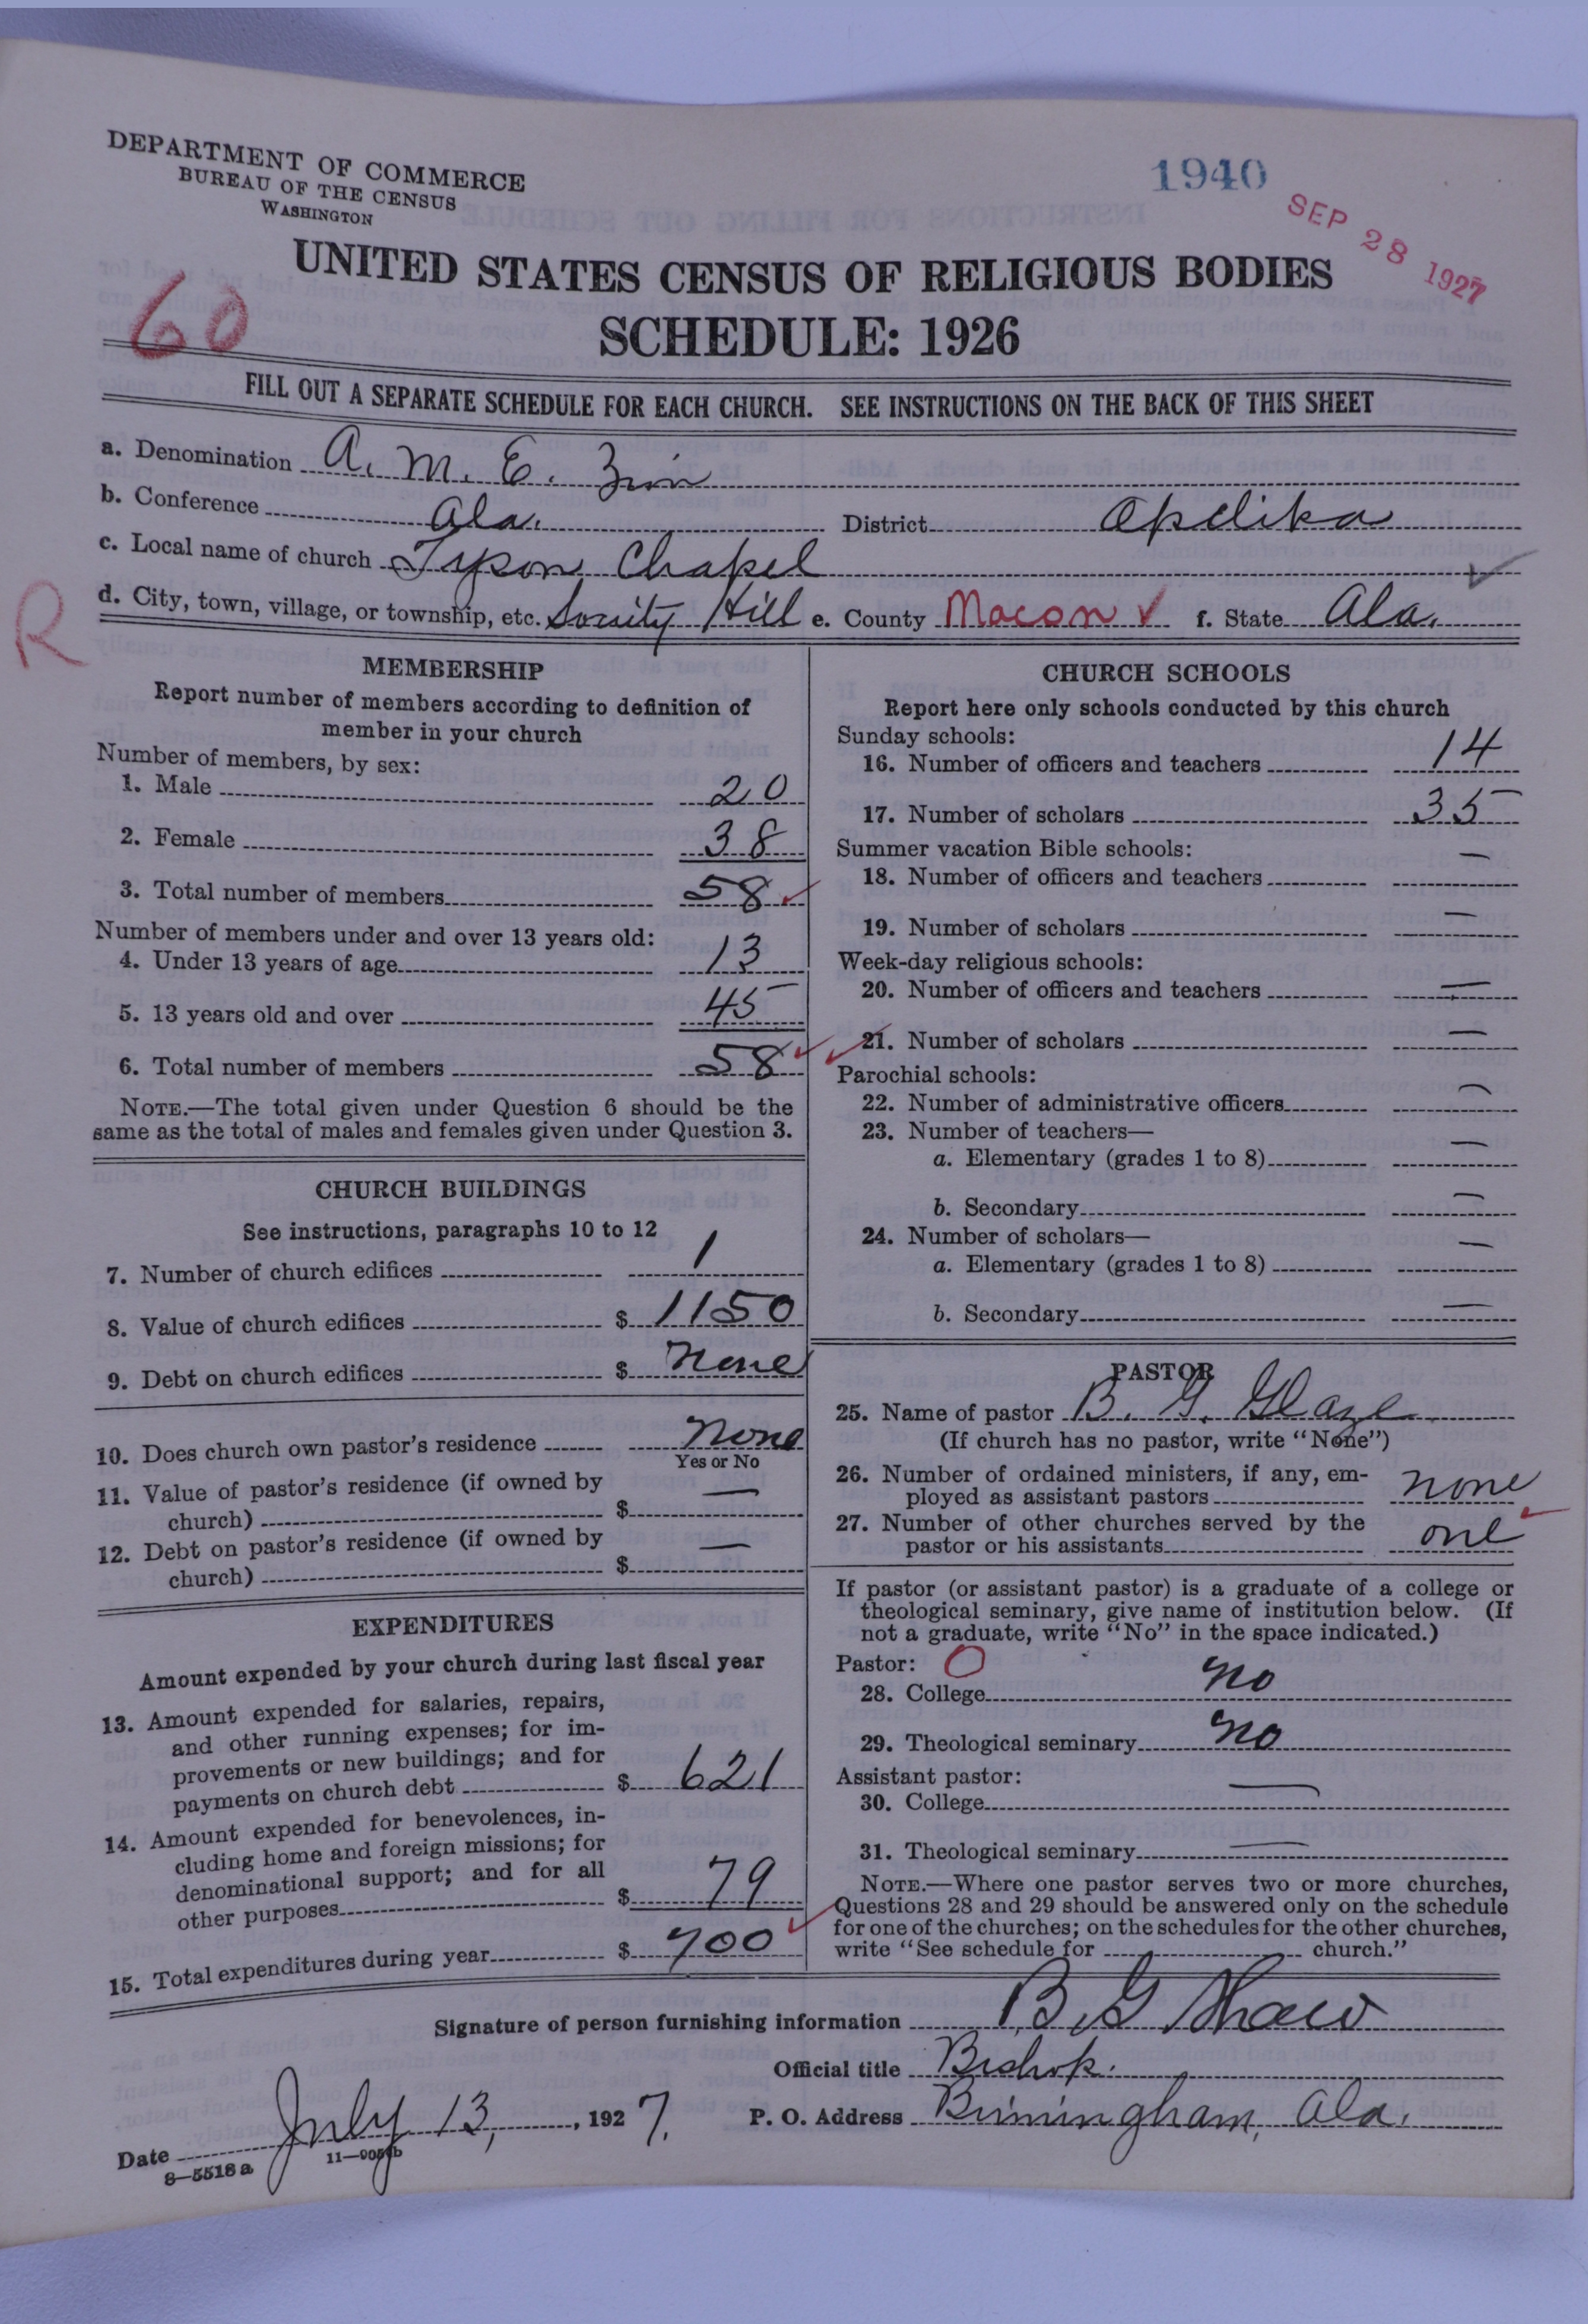 DEPARTMENT OF COMMERCE
BUREAU OF THE CENSUS
WASHINGTON
1940
SEP 28 1927
UNITED STATES CENSUS OF RELIGIOUS BODIES
SCHEDULE: 1926
60
FILL OUT A SEPARATE SCHEDULE FOR EACH CHURCH. SEE INSTRUCTIONS ON THE BACK OF THIS SHEET
a. Denomination A. M. E. Zion
b. Conference Ala. District Opelika
c. Local name of church Tyson Chapel
d. City, town, village, or township, etc. Socity Hill e. County Macon f. State Ala.
R
MEMBERSHIP
Report number of members according to definition of
member in your church
Number of members, by sex:
1. Male 20
2. Female 38
3. Total number of members 58
Number of members under and over 13 years old:
4. Under 13 years of age 13
5. 13 years old and over 45
6. Total number of members 58
NOTE.—The total given under Question 6 should be the
same as the total of males and females given under Question 3.
CHURCH BUILDINGS
See instructions, paragraphs 10 to 12
7. Number of church edifices 1
8. Value of church edifices $ 1150
9. Debt on church edifices $ none
10. Does church own pastor's residence none
Yes or No
11. Value of pastor's residence (if owned by
church) $ —
12. Debt on pastor's residence (if owned by
church) $ —
EXPENDITURES
Amount expended by your church during last fiscal year
13. Amount expended for salaries, repairs,
and other running expenses; for im-
provements or new buildings; and for
payments on church debt $ 621
14. Amount expended for benevolences, in-
cluding home and foreign missions; for
denominational support; and for all
other purposes $ 79
15. Total expenditures during year $ 700
CHURCH SCHOOLS
Report here only schools conducted by this church
Sunday schools:
16. Number of officers and teachers 14
17. Number of scholars 35
Summer vacation Bible schools:
18. Number of officers and teachers —
19. Number of scholars —
Week-day religious schools:
20. Number of officers and teachers —
21. Number of scholars —
Parochial schools:
22. Number of administrative officers —
23. Number of teachers—
a. Elementary (grades 1 to 8) —
b. Secondary —
24. Number of scholars—
a. Elementary (grades 1 to 8) —
b. Secondary —
PASTOR
25. Name of pastor B. G. Glaze
(If church has no pastor, write "None")
26. Number of ordained ministers, if any, em-
ployed as assistant pastors none
27. Number of other churches served by the
pastor or his assistants one
If pastor (or assistant pastor) is a graduate of a college or
theological seminary, give name of institution below. (If
not a graduate, write "No" in the space indicated.)
Pastor: O
28. College no
29. Theological seminary no
Assistant pastor:
30. College —
31. Theological seminary —
NOTE.—Where one pastor serves two or more churches,
Questions 28 and 29 should be answered only on the schedule
for one of the churches; on the schedules for the other churches,
write "See schedule for church."
Signature of person furnishing information B. G Shaw
Official title Bishop.
Date July 13, 1927. P. O. Address Birmingham, Ala.
8—5518a 11—9051b